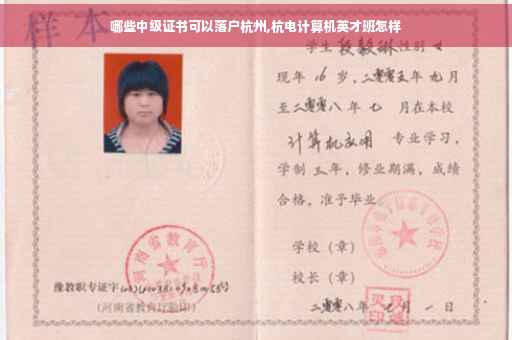 哪些中级证书可以落户杭州,杭电计算机英才班怎样
样本
学生段毅琳性别女
现年16岁,二零零五年九月
至二零零八年七月在本校
计算机应用 专业学习,
学制三年,修业期满,成绩
合格,准予毕业
学校(章)
校长(章)
二零零八年七月一日
河南省教育厅
豫教职专证字
(河南省教育厅验印)